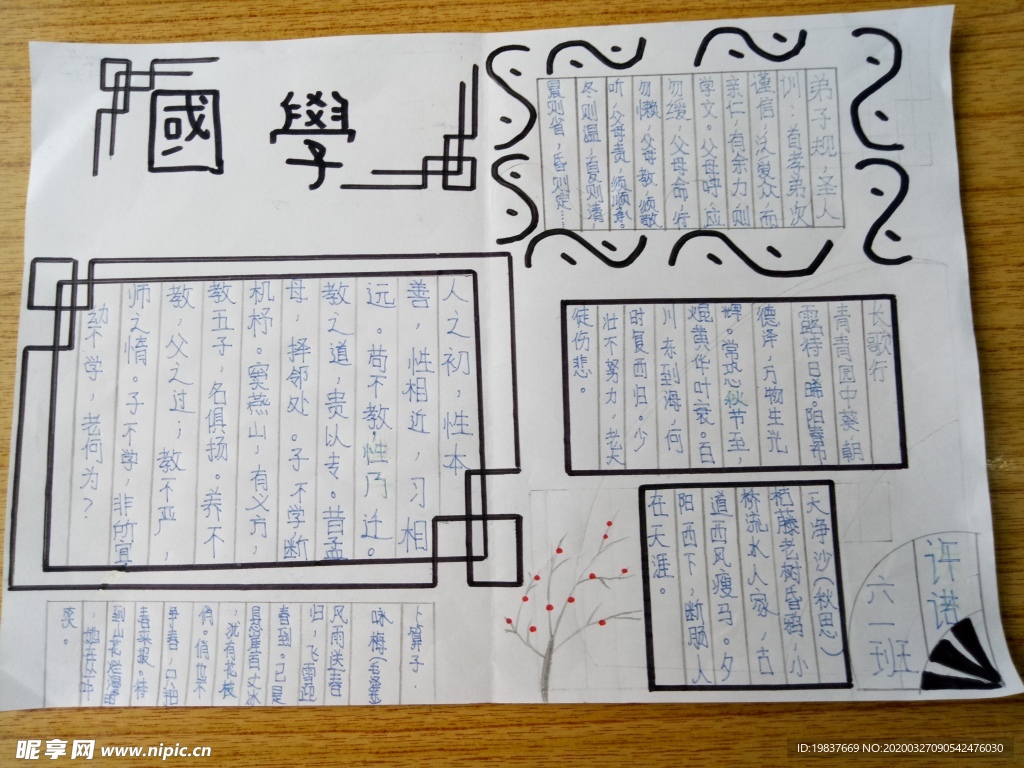 國 學
人之初，性本
善，性相近，习相
远。苟不教，性乃迁。
教之道，贵以专。昔孟
母，择邻处。子不学断
机杼。窦燕山，有义方，
教五子，名俱扬。养不
教，父之过；教不严，
师之惰。子不学，非所宜
幼不学，老何为？
弟子规，圣人
训：首孝弟，次
谨信，泛爱众，而
亲仁，有余力，则
学文。父母呼，应
勿缓，父母命，行
勿懒，父母教，须敬
听，父母责，须顺承。
冬则温，夏则清，
晨则省，昏则定……
长歌行
青青园中葵，朝
露待日晞。阳春布
德泽，万物生光
辉。常恐秋节至，
焜黄华叶衰。百
川东到海，何
时复西归。少
壮不努力，老大
徒伤悲。
天净沙（秋思）
枯藤老树昏鸦，小
桥流水人家，古
道西风瘦马。夕
阳西下，断肠人
在天涯。
卜算子·
咏梅
风雨送春
归，飞雪迎
春到。已是
悬崖百丈冰
，犹有花枝
俏。俏也不
争春，只把
春来报。待
到山花烂漫
笑。
许诺
六一班
昵享网 www.nipic.cn
ID:19837669 NO:20200327090542476030